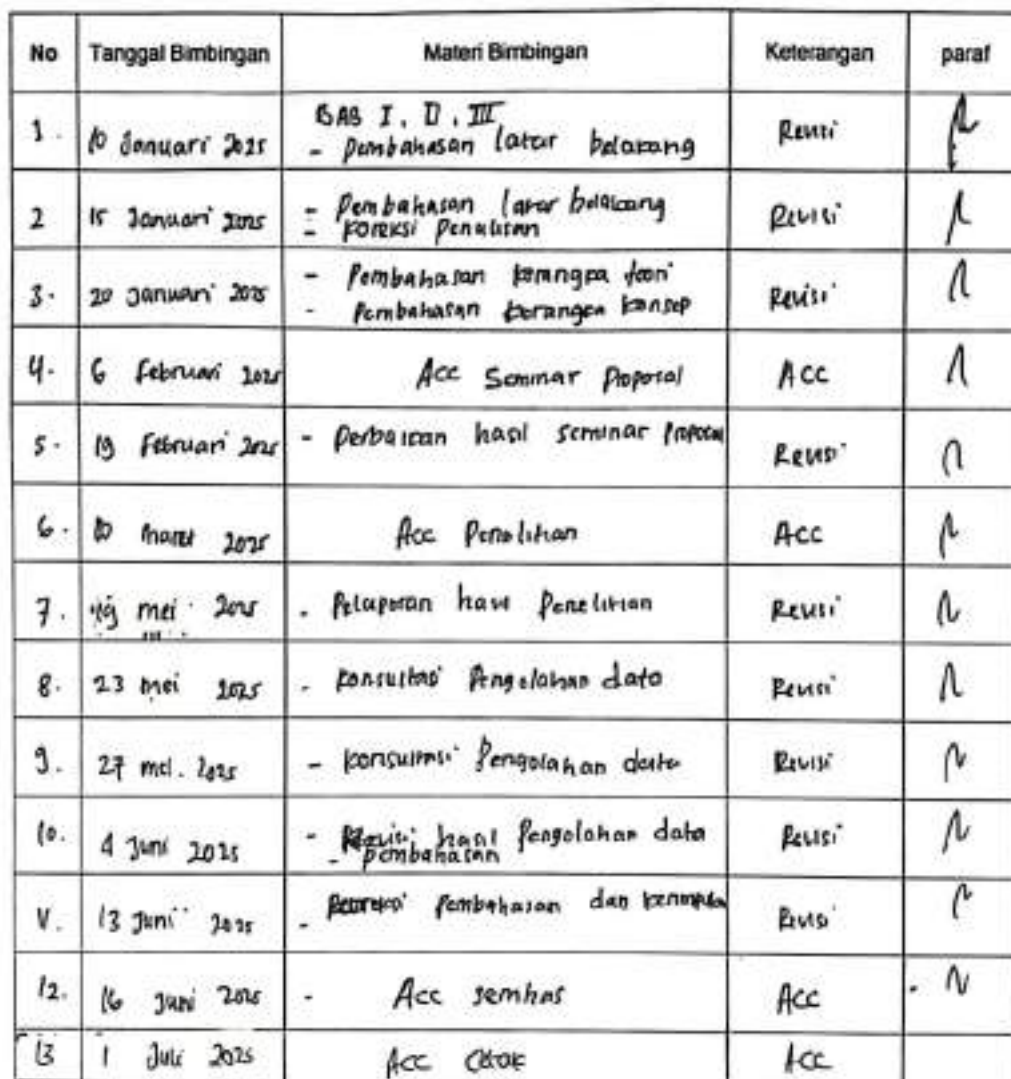 No Tanggal Bimbingan Materi Bimbingan Keterangan paraf
1. 10 Januari 2025 BAB I, II, III Revisi
- Pembahasan latar belakang
2 15 Januari 2025 - Pembahasan latar belakang Revisi
- Koreksi Penulisan
3. 20 Januari 2025 - Pembahasan kerangka teori Revisi
- Pembahasan kerangka konsep
4. 6 Februari 2025 Acc Seminar Proposal ACC
5. 19 Februari 2025 - Perbaikan hasil seminar Proposal Revisi
6. 10 Maret 2025 Acc Penelitian ACC
7. 19 mei 2025 - Pelaporan hasil Penelitian Revisi
8. 23 mei 2025 - Konsultasi Pengolahan data Revisi
9. 27 mei. 2025 - Konsultasi Pengolahan data Revisi
10. 4 Juni 2025 - Revisi hasil Pengolahan data Revisi
- pembahasan
11. 13 Juni 2025 - Pembahasan dan Revisi
12. 16 Juni 2025 - Acc semhas ACC
13 1 Juli 2025 Acc Cetak ACC